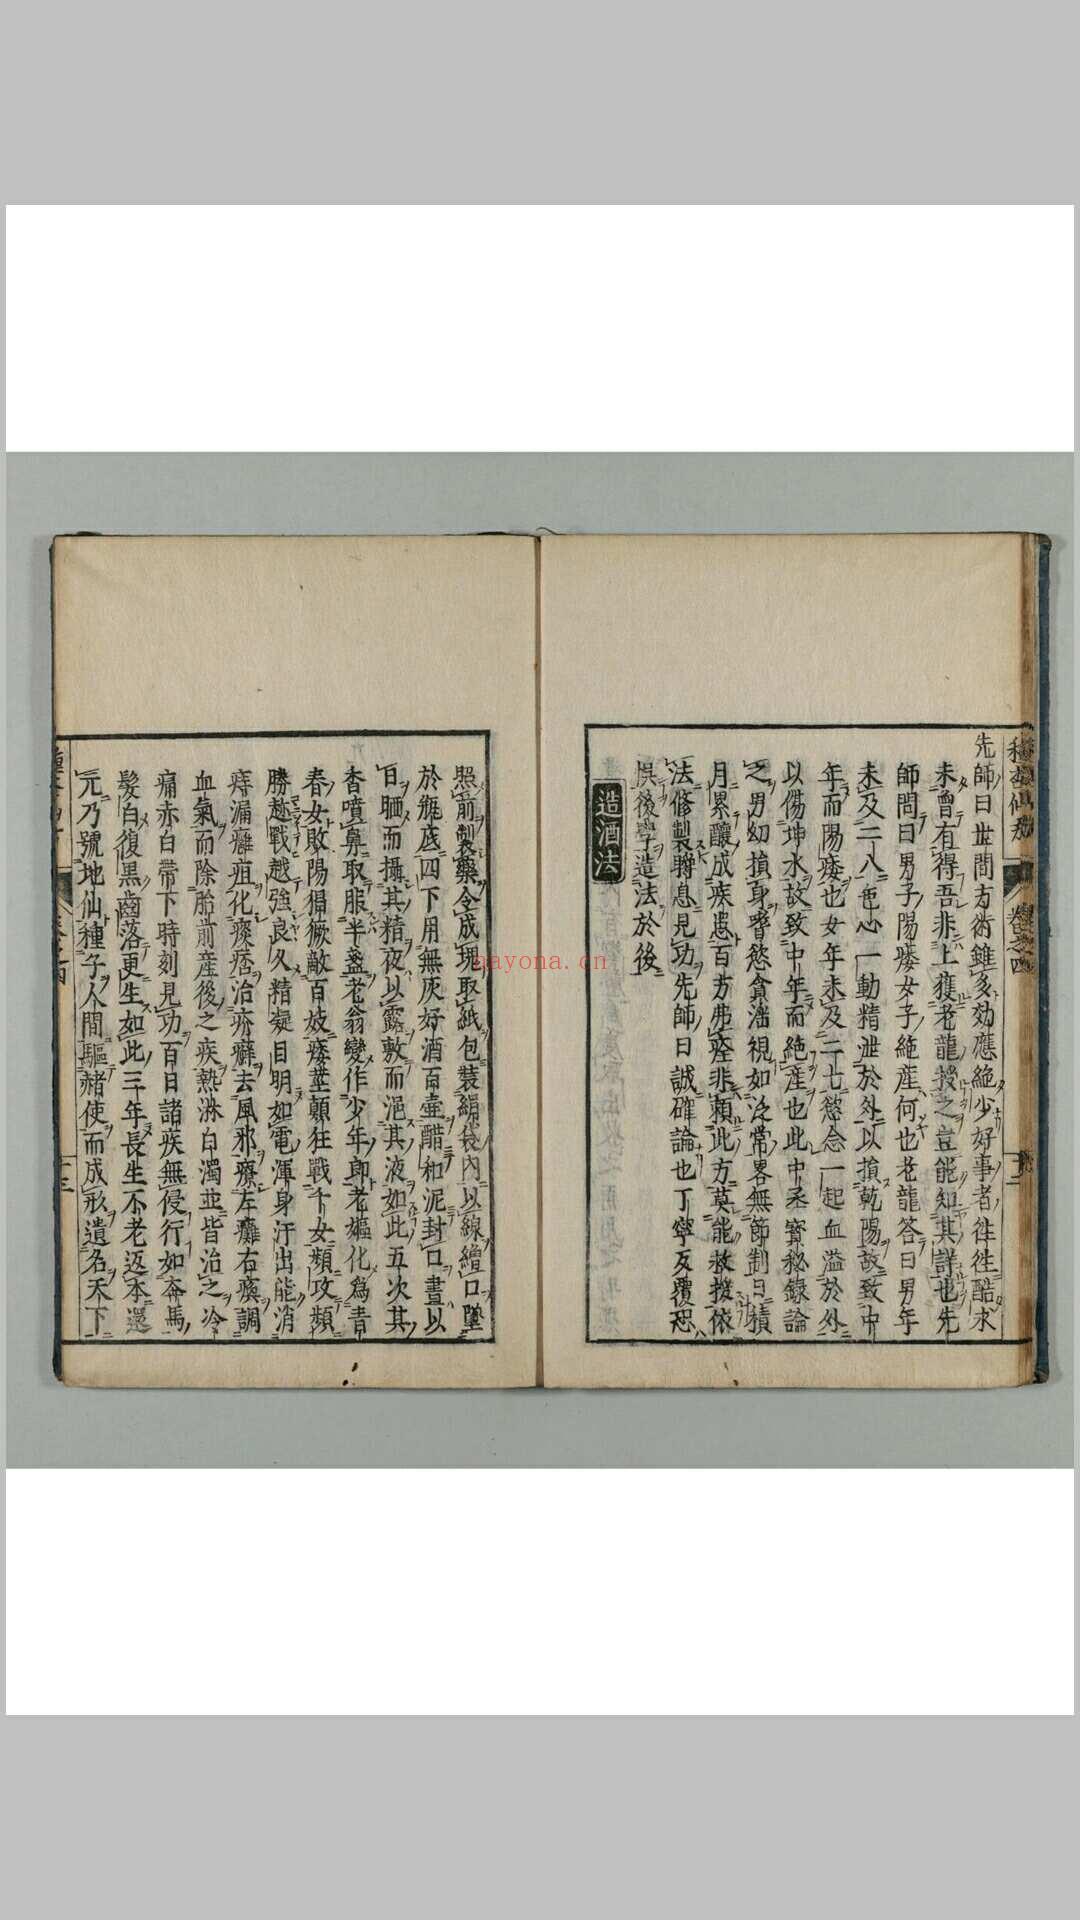 種杏仙方 卷之四 十二
先師曰世間方術雖多効應絶少好事者徃徃酷求
未曾有得吾非上獲老龍授之豈能知其詳也先
師問曰男子陽痿女子絶産何也老龍答曰男年
未及二八色心一動精泄於外以損乾陽故致中
年而陽痿也女年未及二七慾念一起血溢於外
以傷坤水故致中年而絶産也此中丞寳秘録論
之男幼損身嗜慾貪淫視如泛常畧無節制日積
月累釀成疾患百方弗痊非頼此方莫能救援依
法修製瞬息見功先師曰誠確論也丁寧反覆恐
悞後學造法於後
造酒法
照前製藥全成塊取紙包裝絹袋內以線繒口墜
於甁底四下用無灰好酒百壷醋和泥封口晝以
日晒而攝其精夜以露敷而浥其液如此五次其
香噴鼻取服半盞老翁變作少年郎老嫗化爲青
春女敗陽猖獗敵百妓痿莖顛狂戰千女頻攻頻
勝越戰越強良久精凝目明如電渾身汗出能消
痔漏癰疽化痰痞治疥癬去風邪療左癱右瘓調
血氣而除胎前産後之疾熱淋白濁並皆治之冷
痛赤白帶下時刻見功百日諸疾無侵行如奔馬
髮白復黒齒落更生如此三年長生不老返本還
元乃號地仙種子人間驅赭使而成形遺名天下
卷之四
十三
nayona.cn